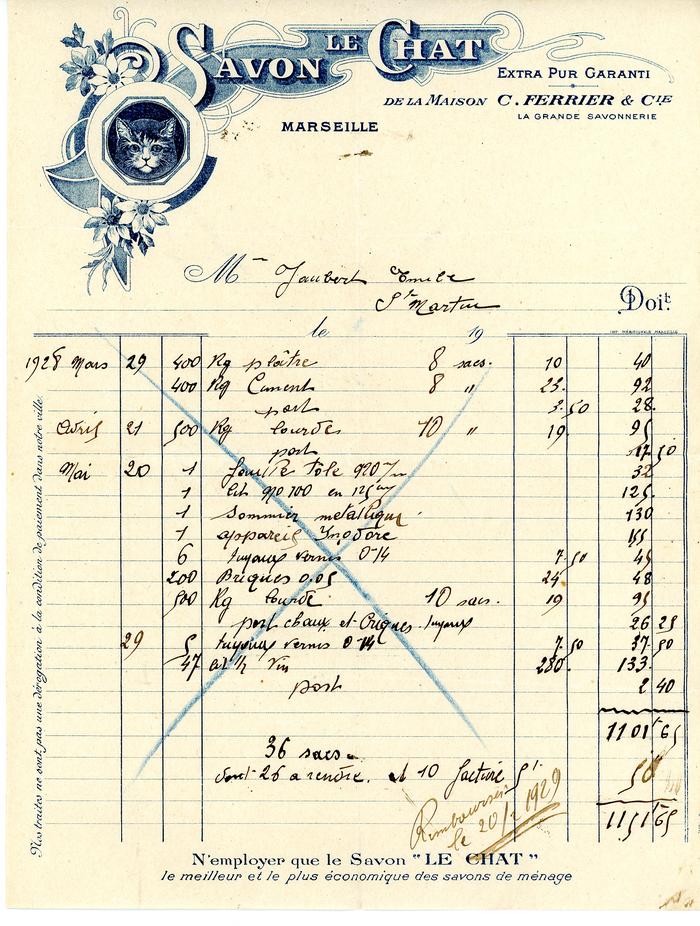 SAVON LE CHAT
EXTRA PUR GARANTI
DE LA MAISON C. FERRIER & CIE
LA GRANDE SAVONNERIE
MARSEILLE
Mr Jaubert Emile
St Martin
Doit
le 19
IMP. MÉRIDIONALE MARSEILLE
1928 Mars 29 400 Kg plâtre 8 sacs. 10 40
400 Kg Ciment 8 " 23. 92
port 3.50 28.
Avril 21 500 Kg lourde 10 " 19. 95
port 17 50
Mai 20 1 Tôle 920 32
1 lit 910 700 en 125
1 sommier métallique 130
1 appareil Inodore
6 tuyaux vernis 0.14 7.50 45
200 Briques 0.05 24 48
500 Kg lourde 10 sacs. 19 95
port chaux et briques. tuyaux 26 25
29 5 tuyaux vernis 0.14 7.50 37.50
47 vin 280. 133.
port 2 40
1101 65
36 sacs.
dont 26 a rendre. et 10 facturé 5f. 50
1151 65
Remboursé
le 20/2 1929
Nos traites ne sont pas une dérogation à la condition de paiement dans notre ville.
N'employer que le Savon "LE CHAT"
le meilleur et le plus économique des savons de ménage